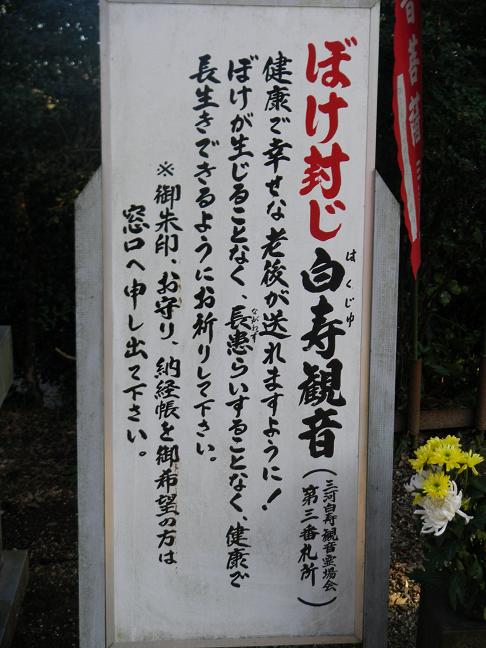 ぼけ封じ白寿観音
はくじゅ
(三河白寿観音霊場会
第三番札所)
健康で幸せな老後が送れますように！
ぼけが生じることなく、長患らいすることなく、健康で
ながわず
長生きできるようにお祈りして下さい。
※御朱印、お守り、納経帳を御希望の方は
窓口へ申し出て下さい。
音菩薩